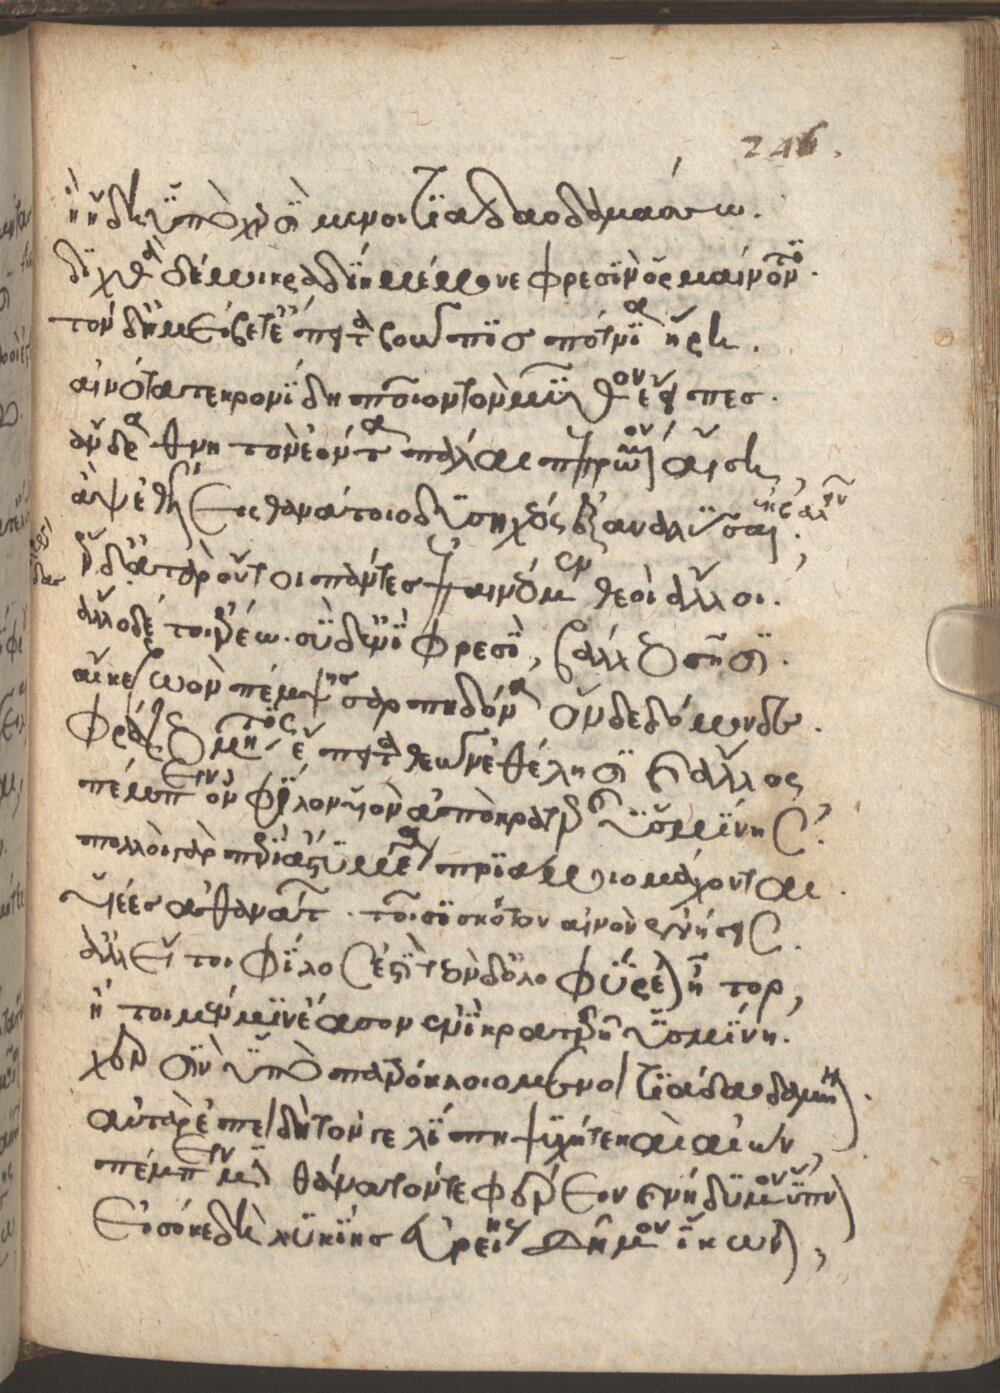 246.
ἢ ἤδη ὑπὸ χερσὶ μενοιτιάδαο δαμάσσω.
διχθὰ δέ μοι κραδίη μέμονε φρεσὶν ὁρμαίνοντι.
τὸν δ' ἠμείβετ' ἔπειτα βοῶπις πότνια ἥρη.
αἰνότατε κρονίδη ποῖον τὸν μῦθον ἔειπες.
ἄνδρα θνητὸν ἐόντα πάλαι πεπρωμένον αἴσῃ,
ἂψ ἐθέλεις θανάτοιο δυσηχέος ἐξαναλῦσαι.
ἔρδ' ἀτὰρ οὔ τοι πάντες ἐπαινέομεν θεοὶ ἄλλοι.
ἄλλο δέ τοι ἐρέω. σὺ δ' ἐνὶ φρεσὶ, βάλλεο σῇσι.
αἴ κε ζωὸν πέμψῃς σαρπηδόνα ὅνδε δόμονδε.
φράζεο μή τις ἔπειτα θεῶν ἐθέλῃσι καὶ ἄλλος
πέμπειν ὃν φίλον υἱὸν ἀπὸ κρατερῆς ὑσμίνης.
πολλοὶ γὰρ περὶ ἄστυ μέγα πριάμοιο μάχονται.
υἱέες ἀθανάτων. τοῖσι κότον αἰνὸν ἐνήσεις.
ἀλλ' εἴ τοι φίλος ἐστὶ τεὸν δ' ὀλοφύρεται ἦτορ,
ἤτοι μέν μιν ἔασον ἐνὶ κρατερῇ ὑσμίνῃ.
χερσὶν ὑπὸ πατρόκλοιο μενοιτιάδαο δαμῆναι.
αὐτὰρ ἐπειδὴ τόν γε λίπῃ ψυχή τε καὶ αἰών,
πέμπειν μιν θάνατόν τε φέρειν καὶ νήδυμον ὕπνον
εἰσόκε δὴ λυκίης εὐρείης δῆμον ἵκωνται,